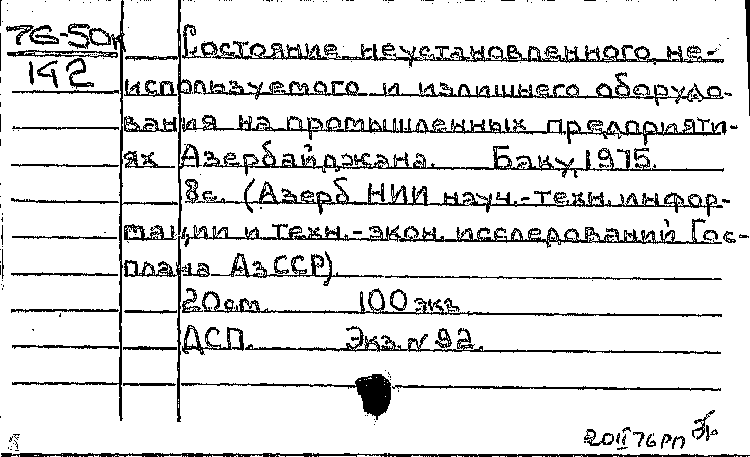 76-50к
142
Состояние неустановленного, не-
используемого и излишнего оборудо-
вания на промышленных предприяти-
ях Азербайджана. Баку, 1975.
8с. (Азерб НИИ науч.-техн. инфор-
мации и техн.-экон. исследований Гос-
плана АзССР).
20см. 100 экз.
ДСП. Экз. № 92.
20 II 76 РП